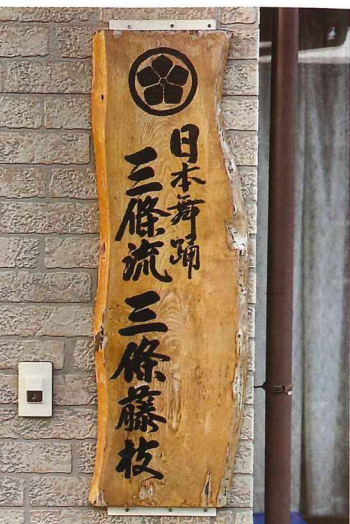 日本舞踊
三條流 三條藤枝